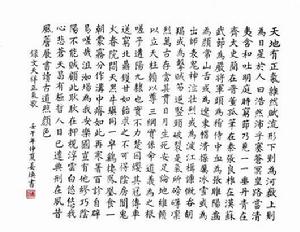 天地有正氣雜然賦流形下則為河嶽上則
為日星於人曰浩然沛乎塞蒼冥皇路當清
夷含和吐明庭時窮節乃見一一垂丹青在
齊太史簡在晉董狐筆在秦張良椎在漢蘇
武節為嚴將軍頭為嵇侍中血為張睢陽齒
為顏常山舌或為遼東帽清操厲冰雪或為
出師表鬼神泣壯烈或為渡江楫慷慨吞胡
羯或為擊賊笏逆豎頭破裂是氣所磅礴凜
烈萬古存當其貫日月生死安足論地維賴
以立天柱賴以尊三綱實繫命道義為之根
嗟予遘陽九隸也實不力楚囚纓其冠傳車
送窮北鼎鑊甘如飴求之不可得陰房闐鬼
火春院閟天黑牛驥同一皂雞棲鳳凰食一
朝蒙霧露分作溝中瘠如此再寒暑百沴自辟
易哀哉沮洳場為我安樂國豈有他繆巧陰
陽不能賊顧此耿耿在仰視浮雲白悠悠我
心悲蒼天曷有極哲人日已遠典刑在夙昔
風簷展書讀古道照顏色
錄文天祥正氣歌
仲夏